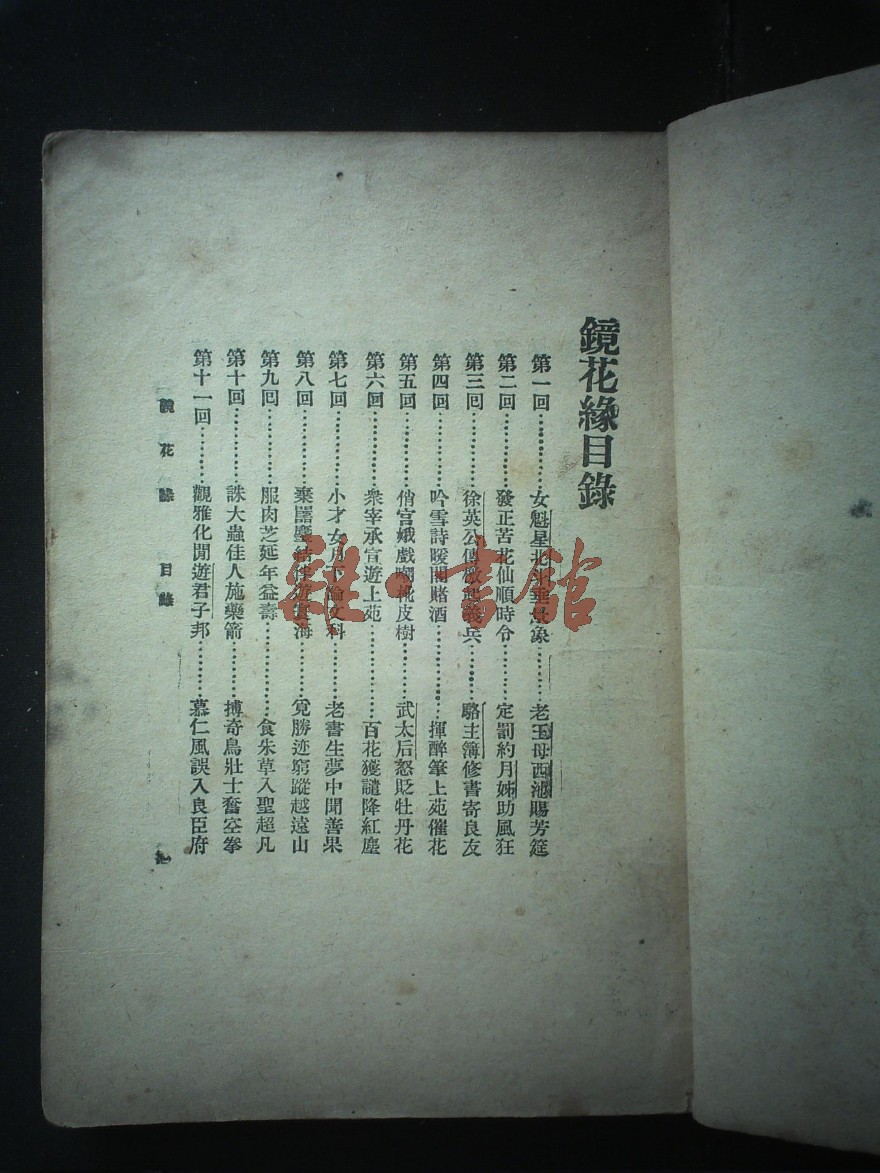 鏡花緣目錄
第一回…………女魁星北斗垂景象………老王母西池賜芳筵
第二回…………發正言花仙順時令………定罰約月姊助風狂
第三回…………徐英公傳檄起義兵………駱主簿修書寄良友
第四回…………吟雪詩暖閣賭酒…………揮醉筆上苑催花
第五回…………俏宮娥戲嘲皮樹………武太后怒貶牡丹花
第六回…………衆宰承宣遊上苑…………百花獲譴降紅塵
第七回…………小才女月下論文科………老書生夢中聞善果
第八回…………棄囂塵結伴遊寰海………覓勝迹窮蹤越遠山
第九回…………服肉芝延年益壽…………食朱草入聖超凡
第十回…………誅大蟲佳人施藥箭………搏奇鳥壯士奮空拳
第十一回………觀雅化閒遊君子邦………慕仁風誤入良臣府
鏡花緣 目錄
雜·書館